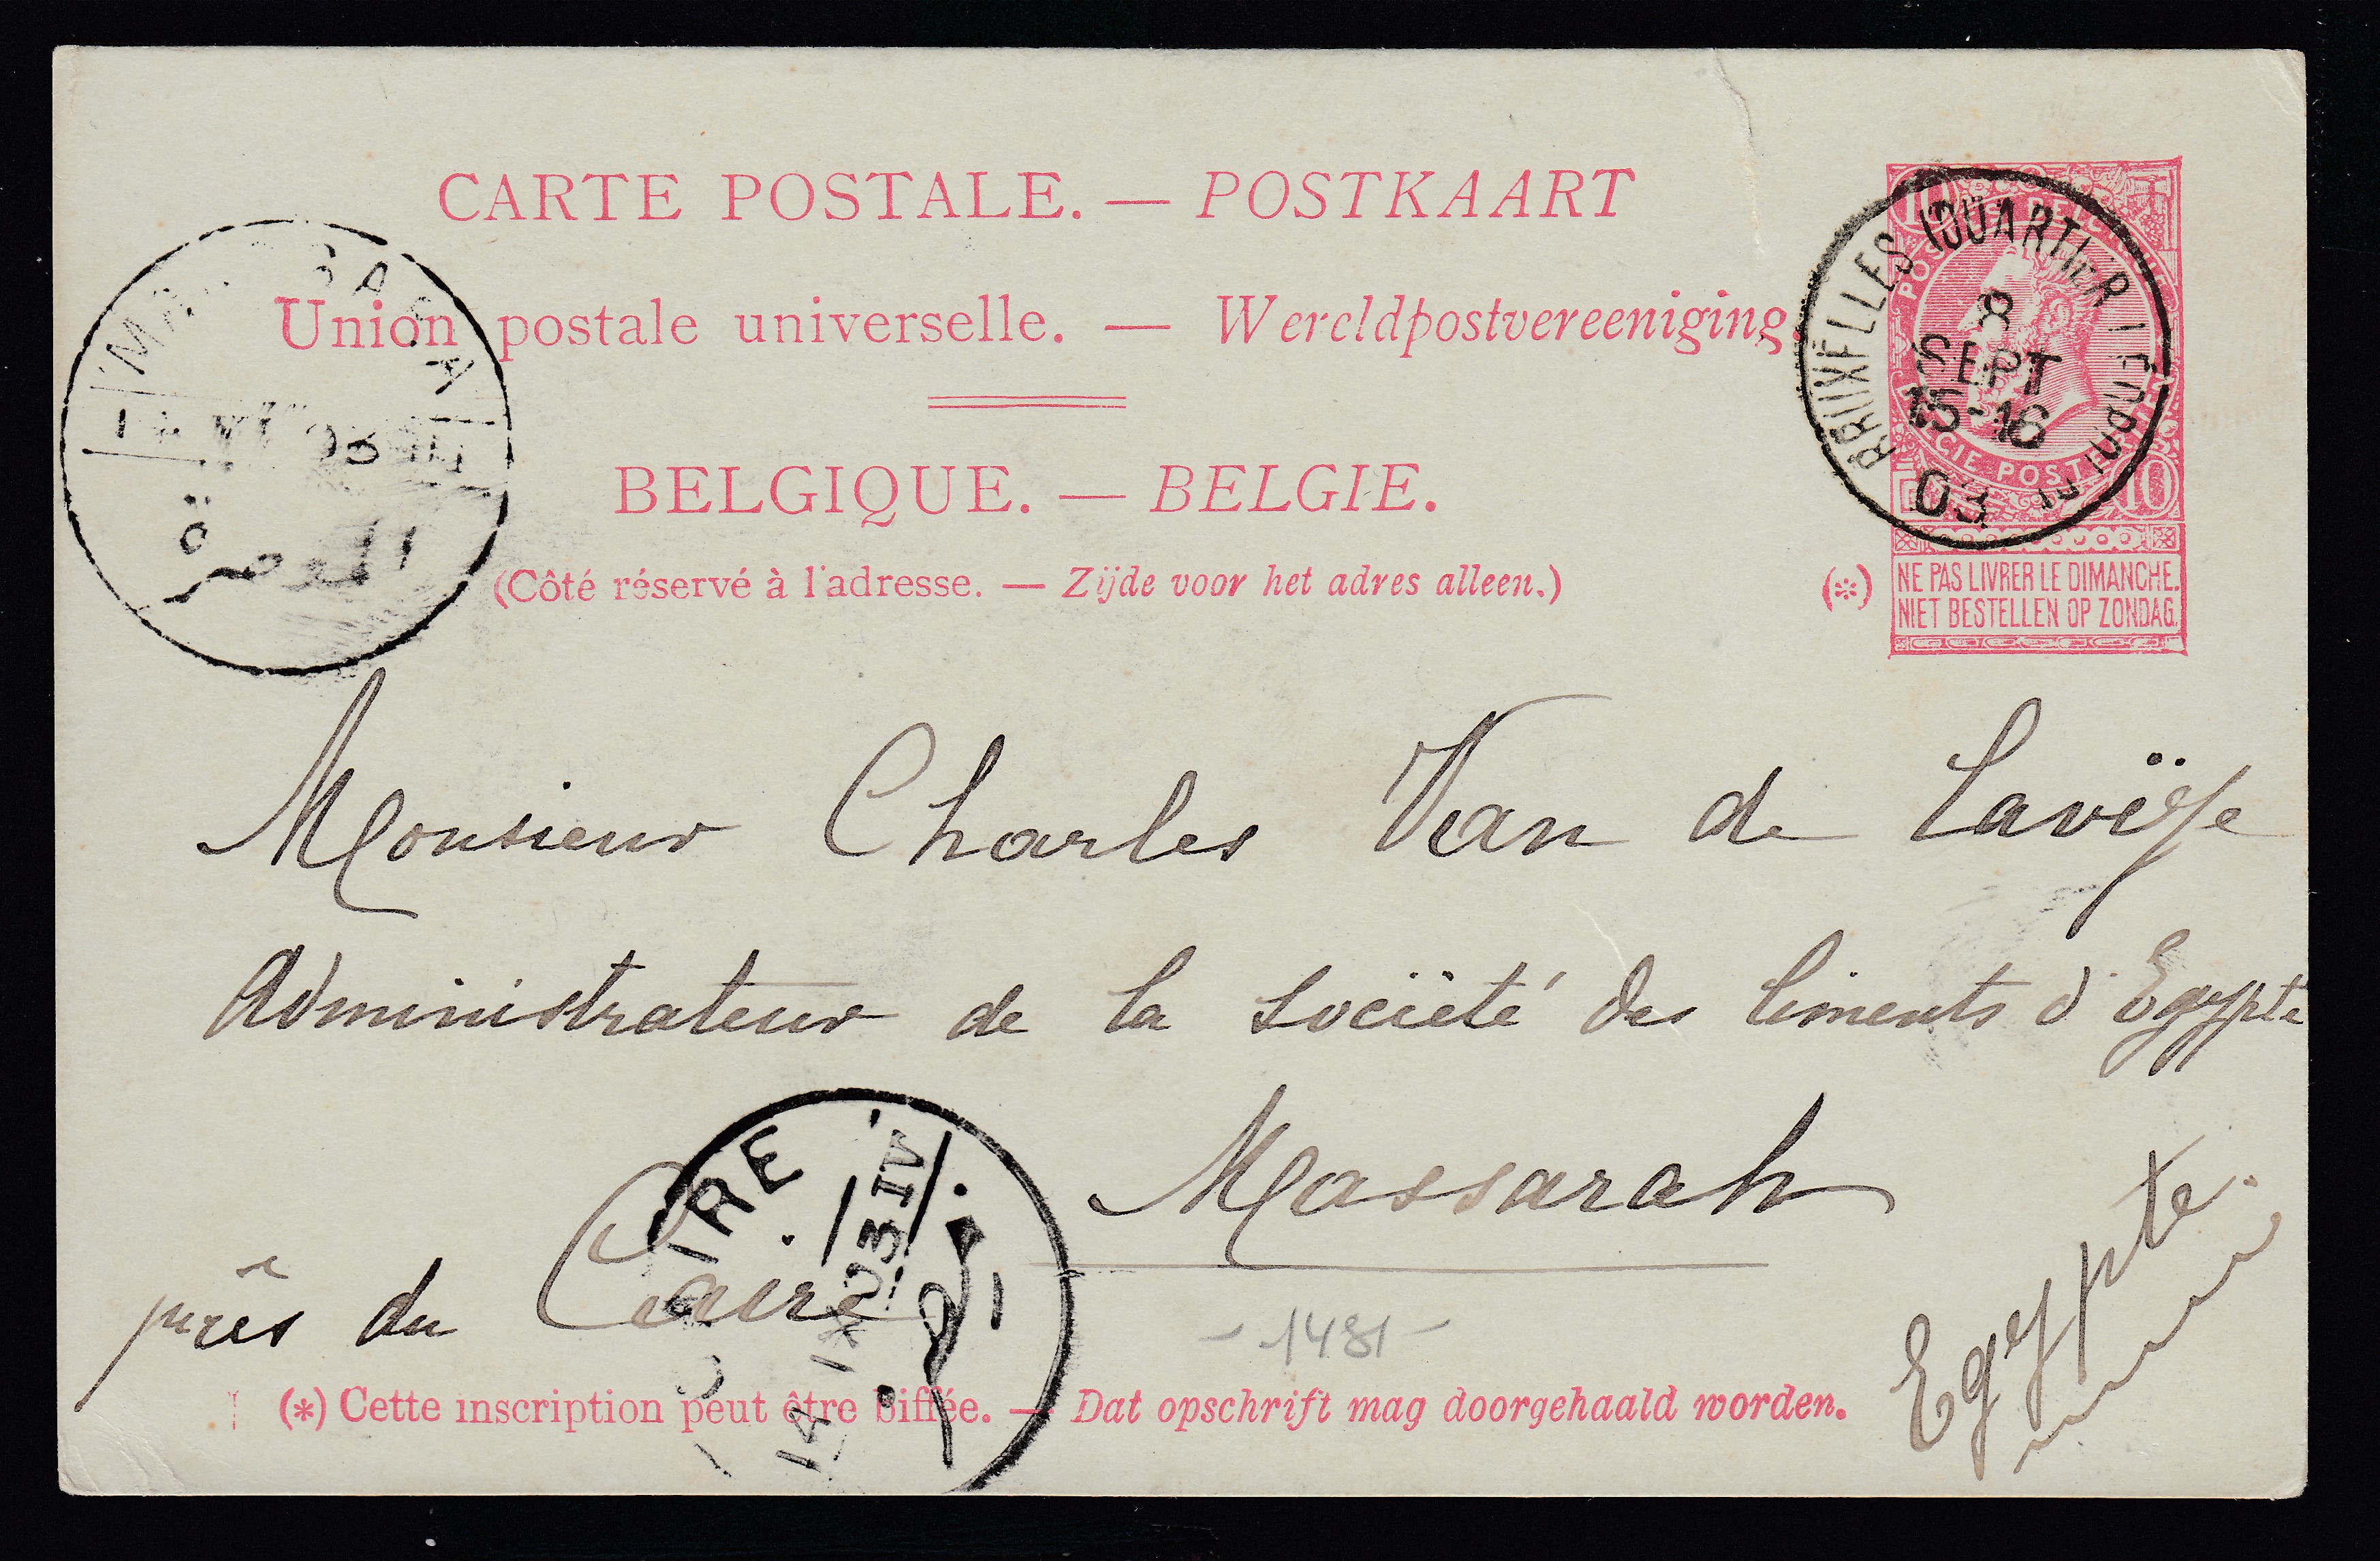 CARTE POSTALE. — POSTKAART
Union postale universelle. — Wereldpostvereeniging.
BELGIQUE. — BELGIE.
(Côté réservé à l'adresse. — Zijde voor het adres alleen.)
(*) NE PAS LIVRER LE DIMANCHE.
NIET BESTELLEN OP ZONDAG.
BRUXELLES (QUARTIER LÉOPOLD)
8
SEPT
15-16
03
10
10
Monsieur Charles Van de
Administrateur de la Société des Ciments d'Egypte
Massarah
près du Caire
Egypte.
CAIRE
14 IX 03 IV
- 1481 -
(*) Cette inscription peut être biffée. — Dat opschrift mag doorgehaald worden.